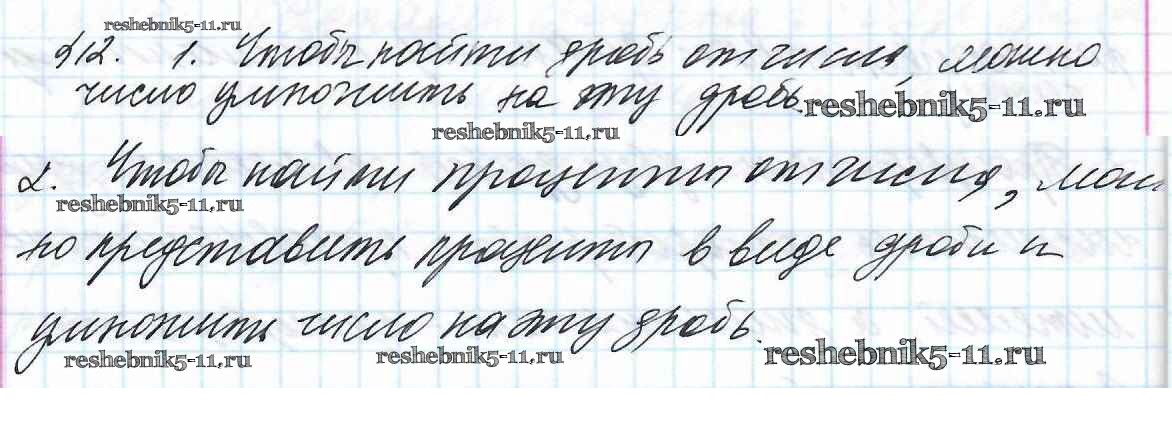 reshebnik5-11.ru
§12. 1. Чтобы найти дробь от числа, можно
число умножить на эту дробь.
reshebnik5-11.ru
reshebnik5-11.ru
2. Чтобы найти проценты от числа, мож
reshebnik5-11.ru
но представить проценты в виде дроби и
умножить число на эту дробь.
reshebnik5-11.ru
reshebnik5-11.ru
reshebnik5-11.ru